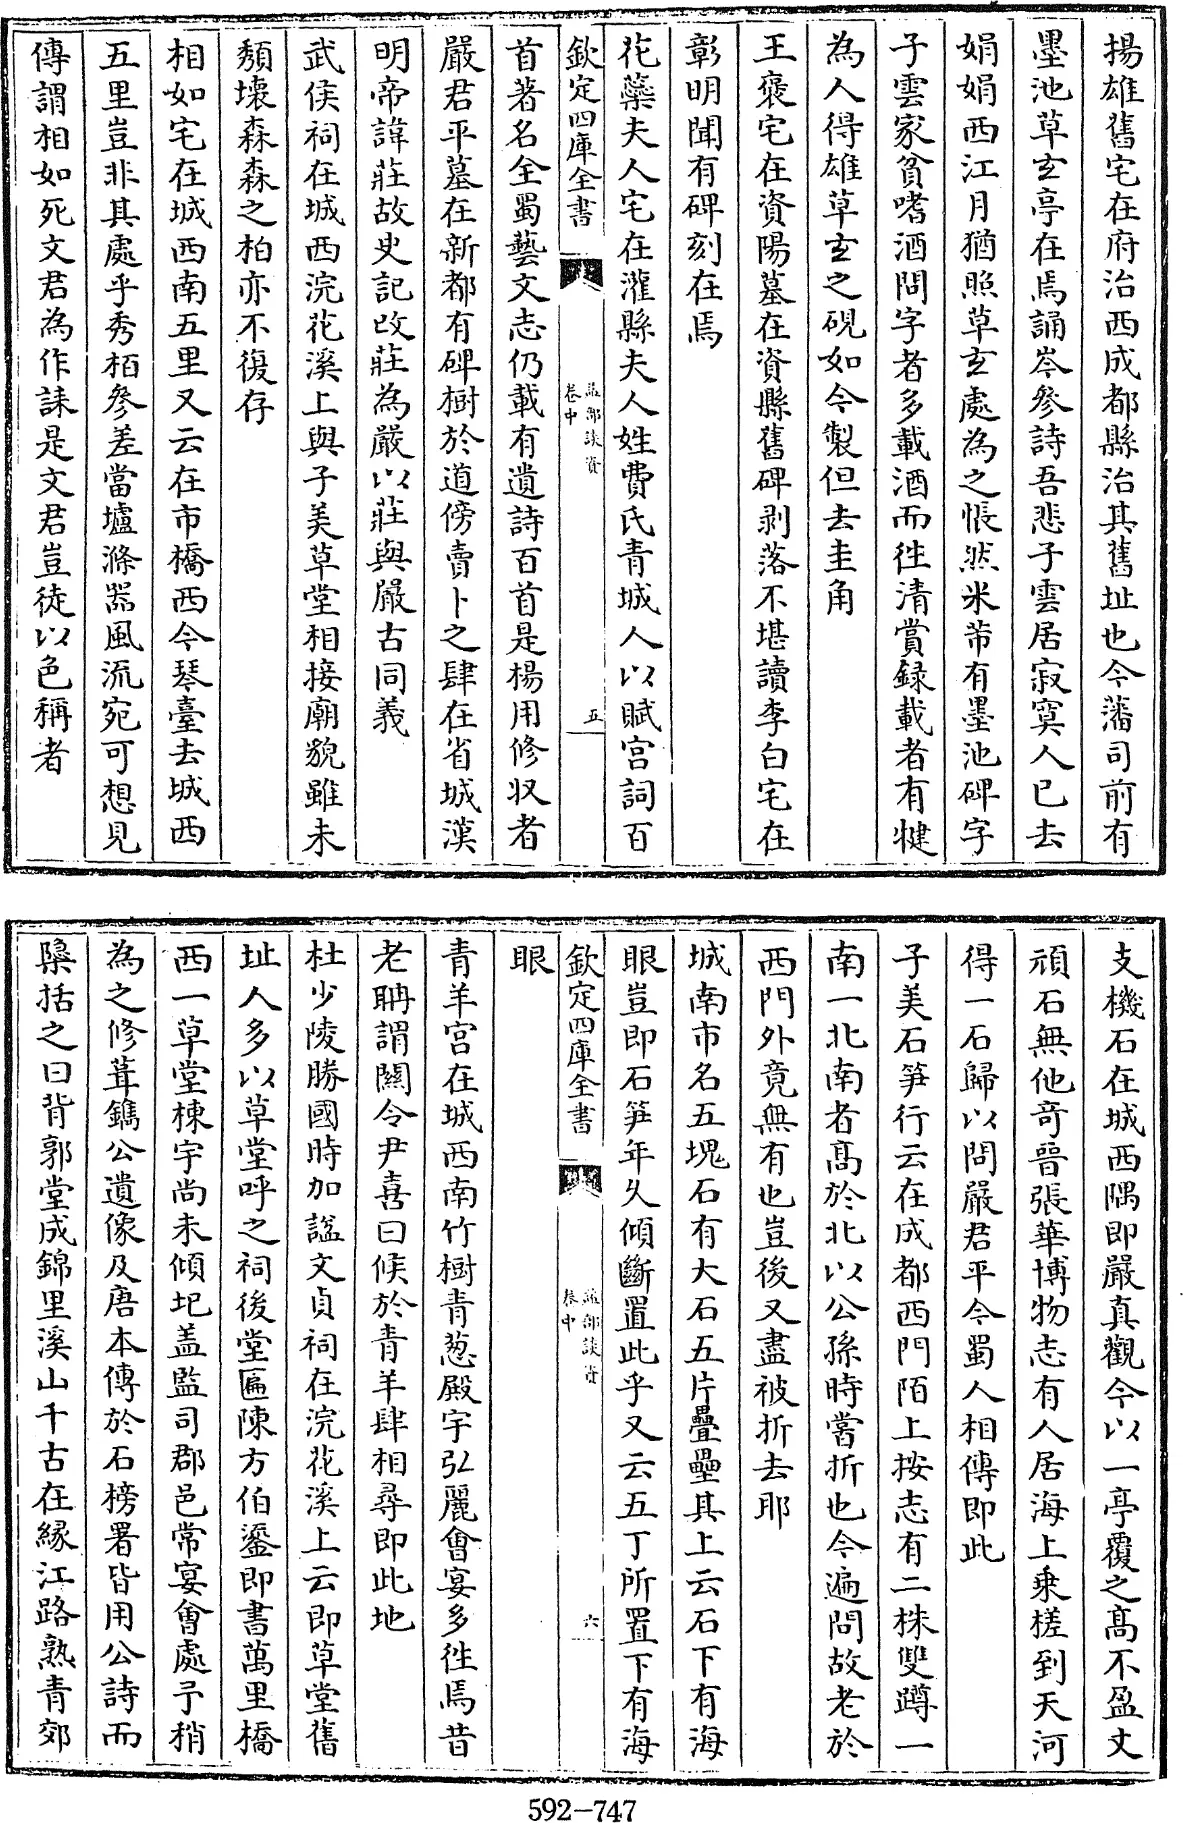 揚雄舊宅在府治西成都縣治其舊址也今藩司前有
墨池草玄亭在焉誦岑參詩吾悲子雲居寂寞人已去
娟娟西江月猶照草玄處為之悵然米芾有墨池碑字
子雲家貧嗜酒問字者多載酒而徃清賞録載者有犍
為人得雄草玄之硯如今製但去圭角
王褒宅在資陽墓在資縣舊碑剥落不堪讀李白宅在
彰明聞有碑刻在焉
花蘂夫人宅在灌縣夫人姓費氏青城人以賦宫詞百
欽定四庫全書
蜀都談資
卷中
五
首著名全蜀藝文志仍載有遺詩百首是楊用修収者
嚴君平墓在新都有碑樹於道傍賣卜之肆在省城漢
明帝諱莊故史記改莊為嚴以莊與嚴古同義
武侯祠在城西浣花溪上與子美草堂相接廟貌雖未
頽壞森森之柏亦不復存
相如宅在城西南五里又云在市橋西今琴臺去城西
五里豈非其處乎秀栢參差當壚滌器風流宛可想見
傳謂相如死文君為作誄是文君豈徒以色稱者
支機石在城西隅即嚴真觀今以一亭覆之髙不盈丈
頑石無他竒晉張華博物志有人居海上乗槎到天河
得一石歸以問嚴君平今蜀人相傳即此
子美石笋行云在成都西門陌上按志有二株雙蹲一
南一北南者髙於北以公孫時嘗折也今遍問故老於
西門外竟無有也豈後又盡被折去耶
城南市名五塊石有大石五片疊壘其上云石下有海
眼豈即石笋年乆傾斷置此乎又云五丁所置下有海
欽定四庫全書
蜀都談資
卷中
六
眼
青羊宫在城西南竹樹青葱殿宇弘麗會宴多徃焉昔
老聃謂關令尹喜曰候於青羊肆相尋即此地
杜少陵勝國時加謚文貞祠在浣花溪上云即草堂舊
址人多以草堂呼之祠後堂匾陳方伯鎏即書萬里橋
西一草堂棟宇尚未傾圮盖監司郡邑常宴會處予稍
為之修葺鐫公遺像及唐本傳於石榜署皆用公詩而
檃括之曰背郭堂成錦里溪山千古在縁江路熟青郊
592-747